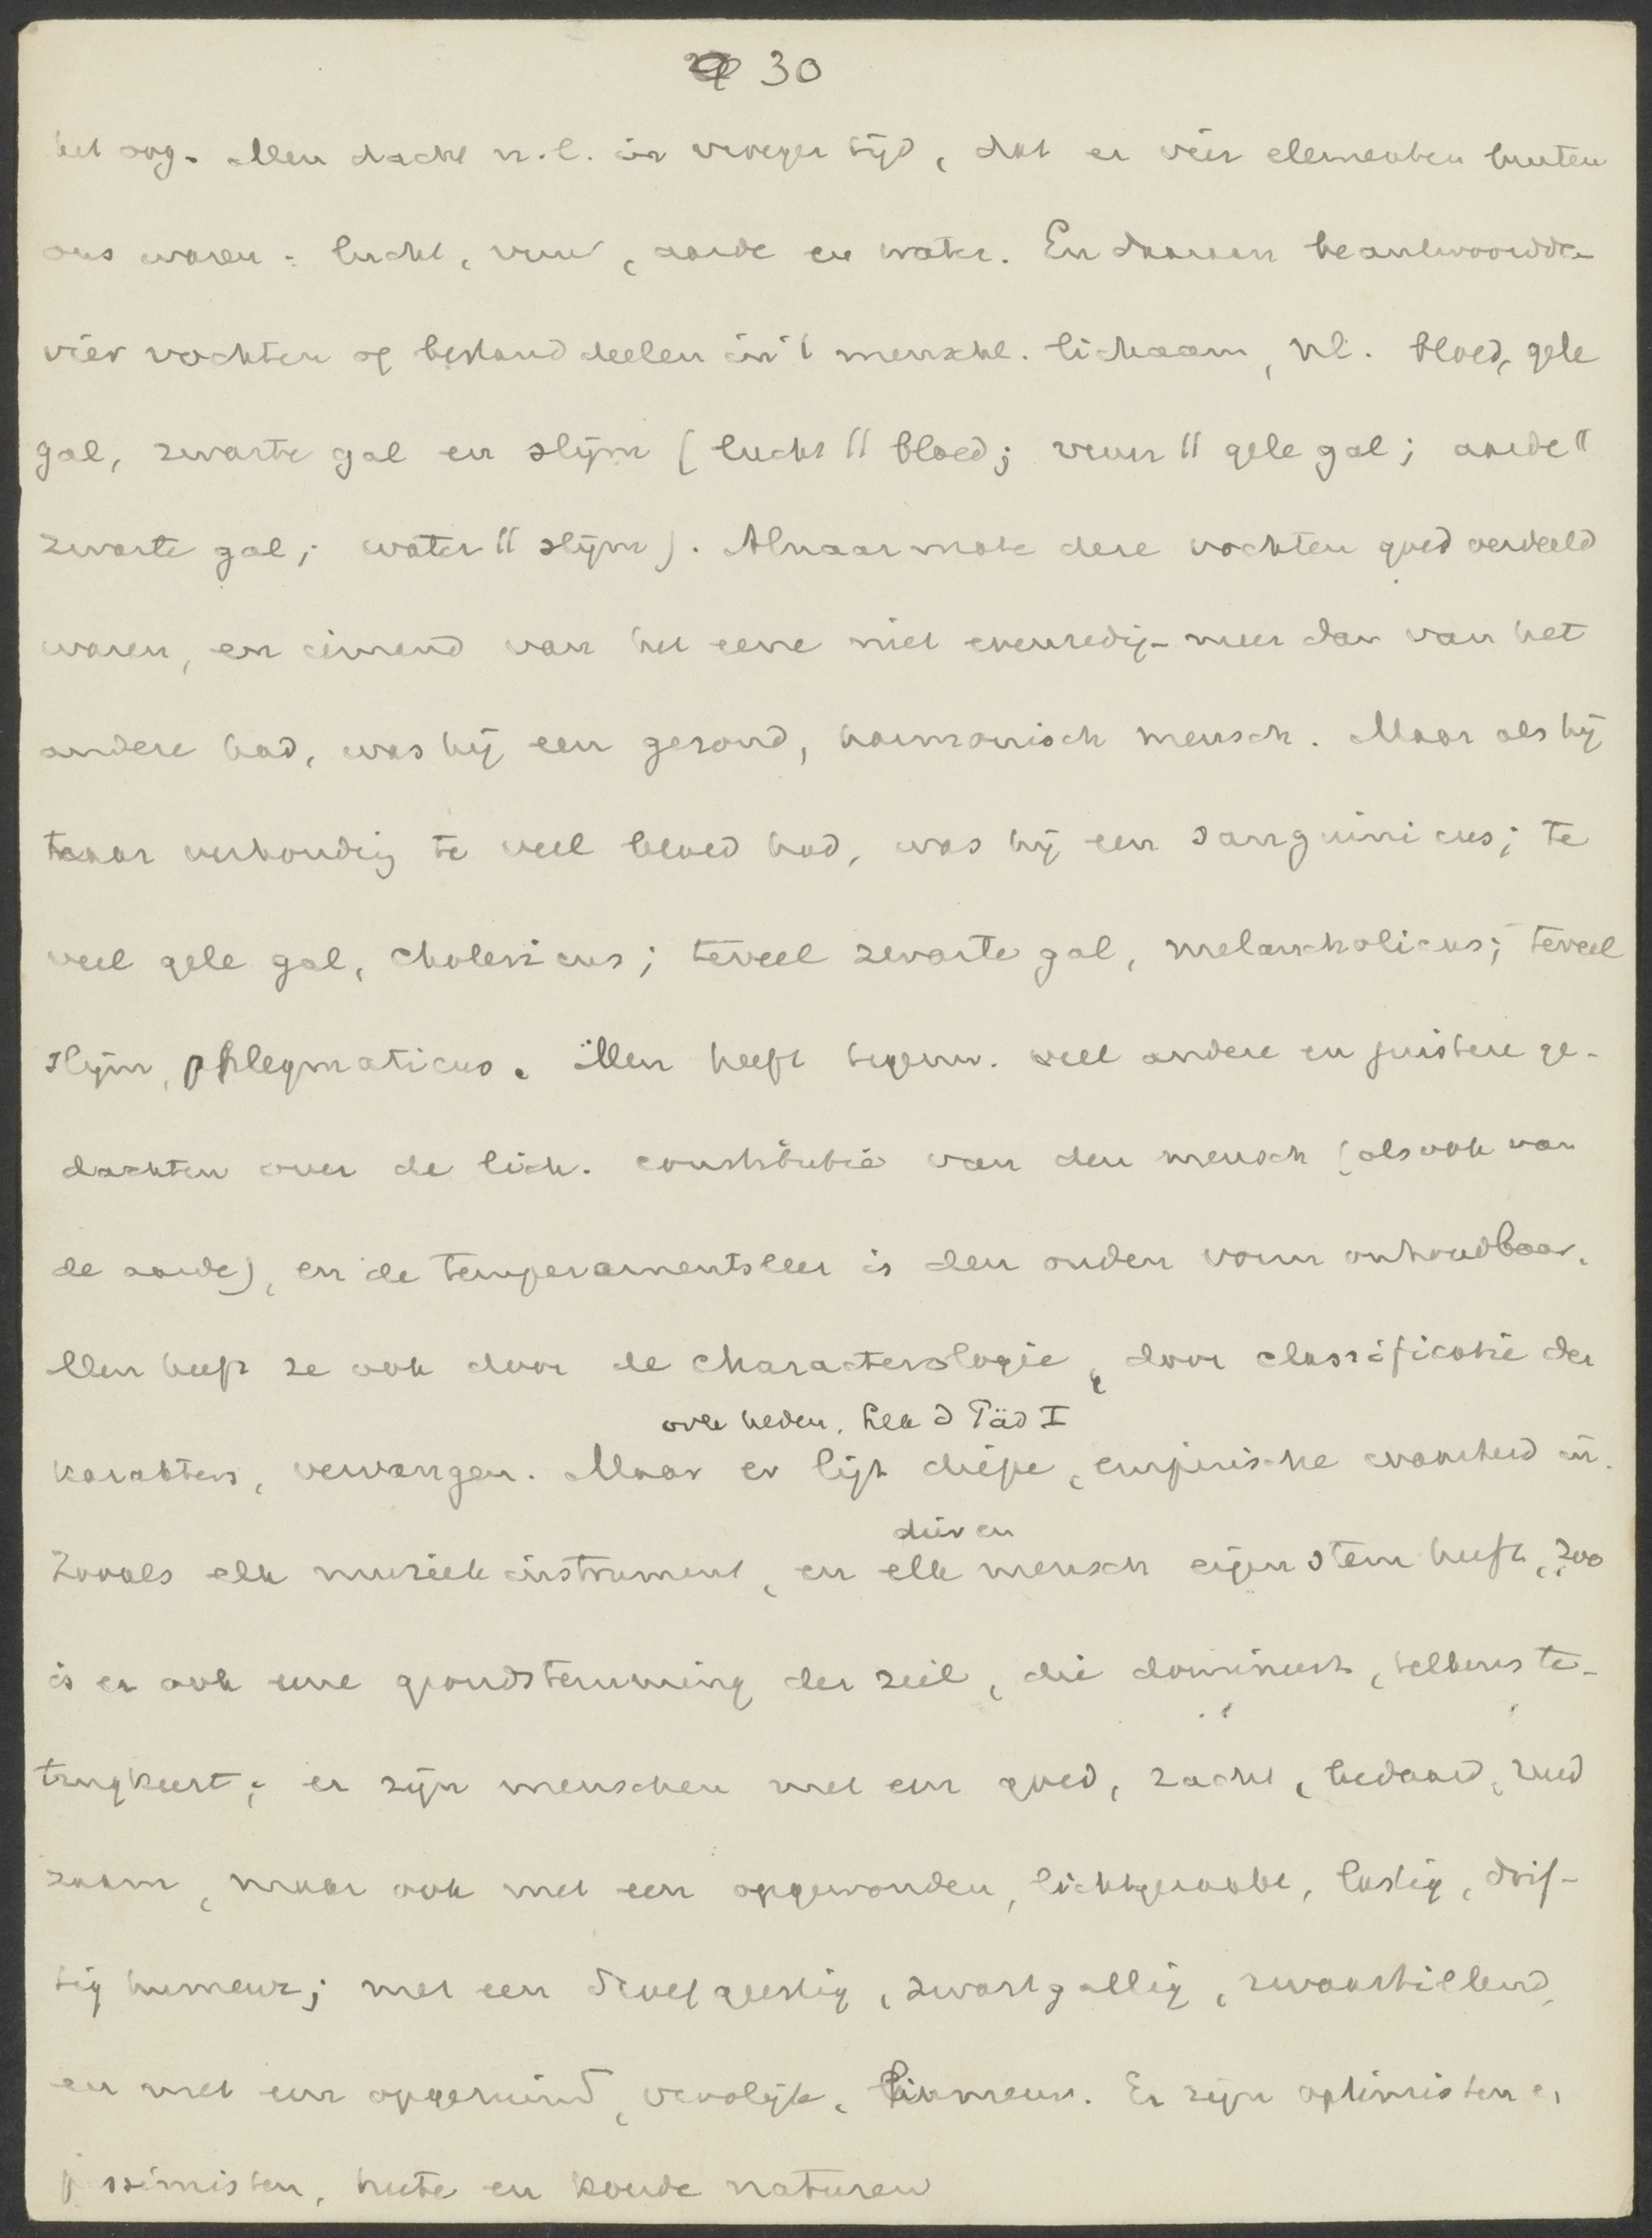 30
het oog. Men dacht n.l. in vroeger tijd, dat er vier elementen buiten
ons waren: lucht, vuur, aarde en water. En daaraan beantwoordden
vier vochten of bestanddeelen in 't menschl. lichaam, nl. bloed, gele
gal, zwarte gal en slijm (lucht || bloed; vuur || gele gal; aarde ||
zwarte gal; water || slijm). Alnaarmate deze vochten goed verdeeld
waren, en iemand van het eene niet evenredig meer dan van het
andere had, was hij een gezond, harmonisch mensch. Maar als hij
naar verhouding te veel bloed had, was hij een sanguinicus; te
veel gele gal, cholericus; teveel zwarte gal, melancholicus; teveel
slijm, phlegmaticus. Men heeft tegenw. veel andere en juistere ge-
dachten over de lich. constitutie van den mensch (als ook van
de aarde), en de temperamentsleer is den ouden vorm onhoudbaar.
Men heeft ze ook door de characterologie, door classificatie der
ovle heden.
karakters, vervangen. Maar er ligt diepe, empirische waarheid in.
dier en
Zooals elk muziekinstrument, en elk mensch eigen stem heeft, zoo
is er ook eene grondstemming der ziel, die domineert, telkens te-
rugkeert; er zijn menschen met een goed, zacht, bedaard,
zaam, maar ook met een opgewonden, lichtgeraakt, lastig, drif-
tig humeur; met een droefgeestig, zwartgallig, zwaartillend,
en met een opgeruimd, vroolijk, humeur. Er zijn optimisten en
pessimisten, heete en koude naturen